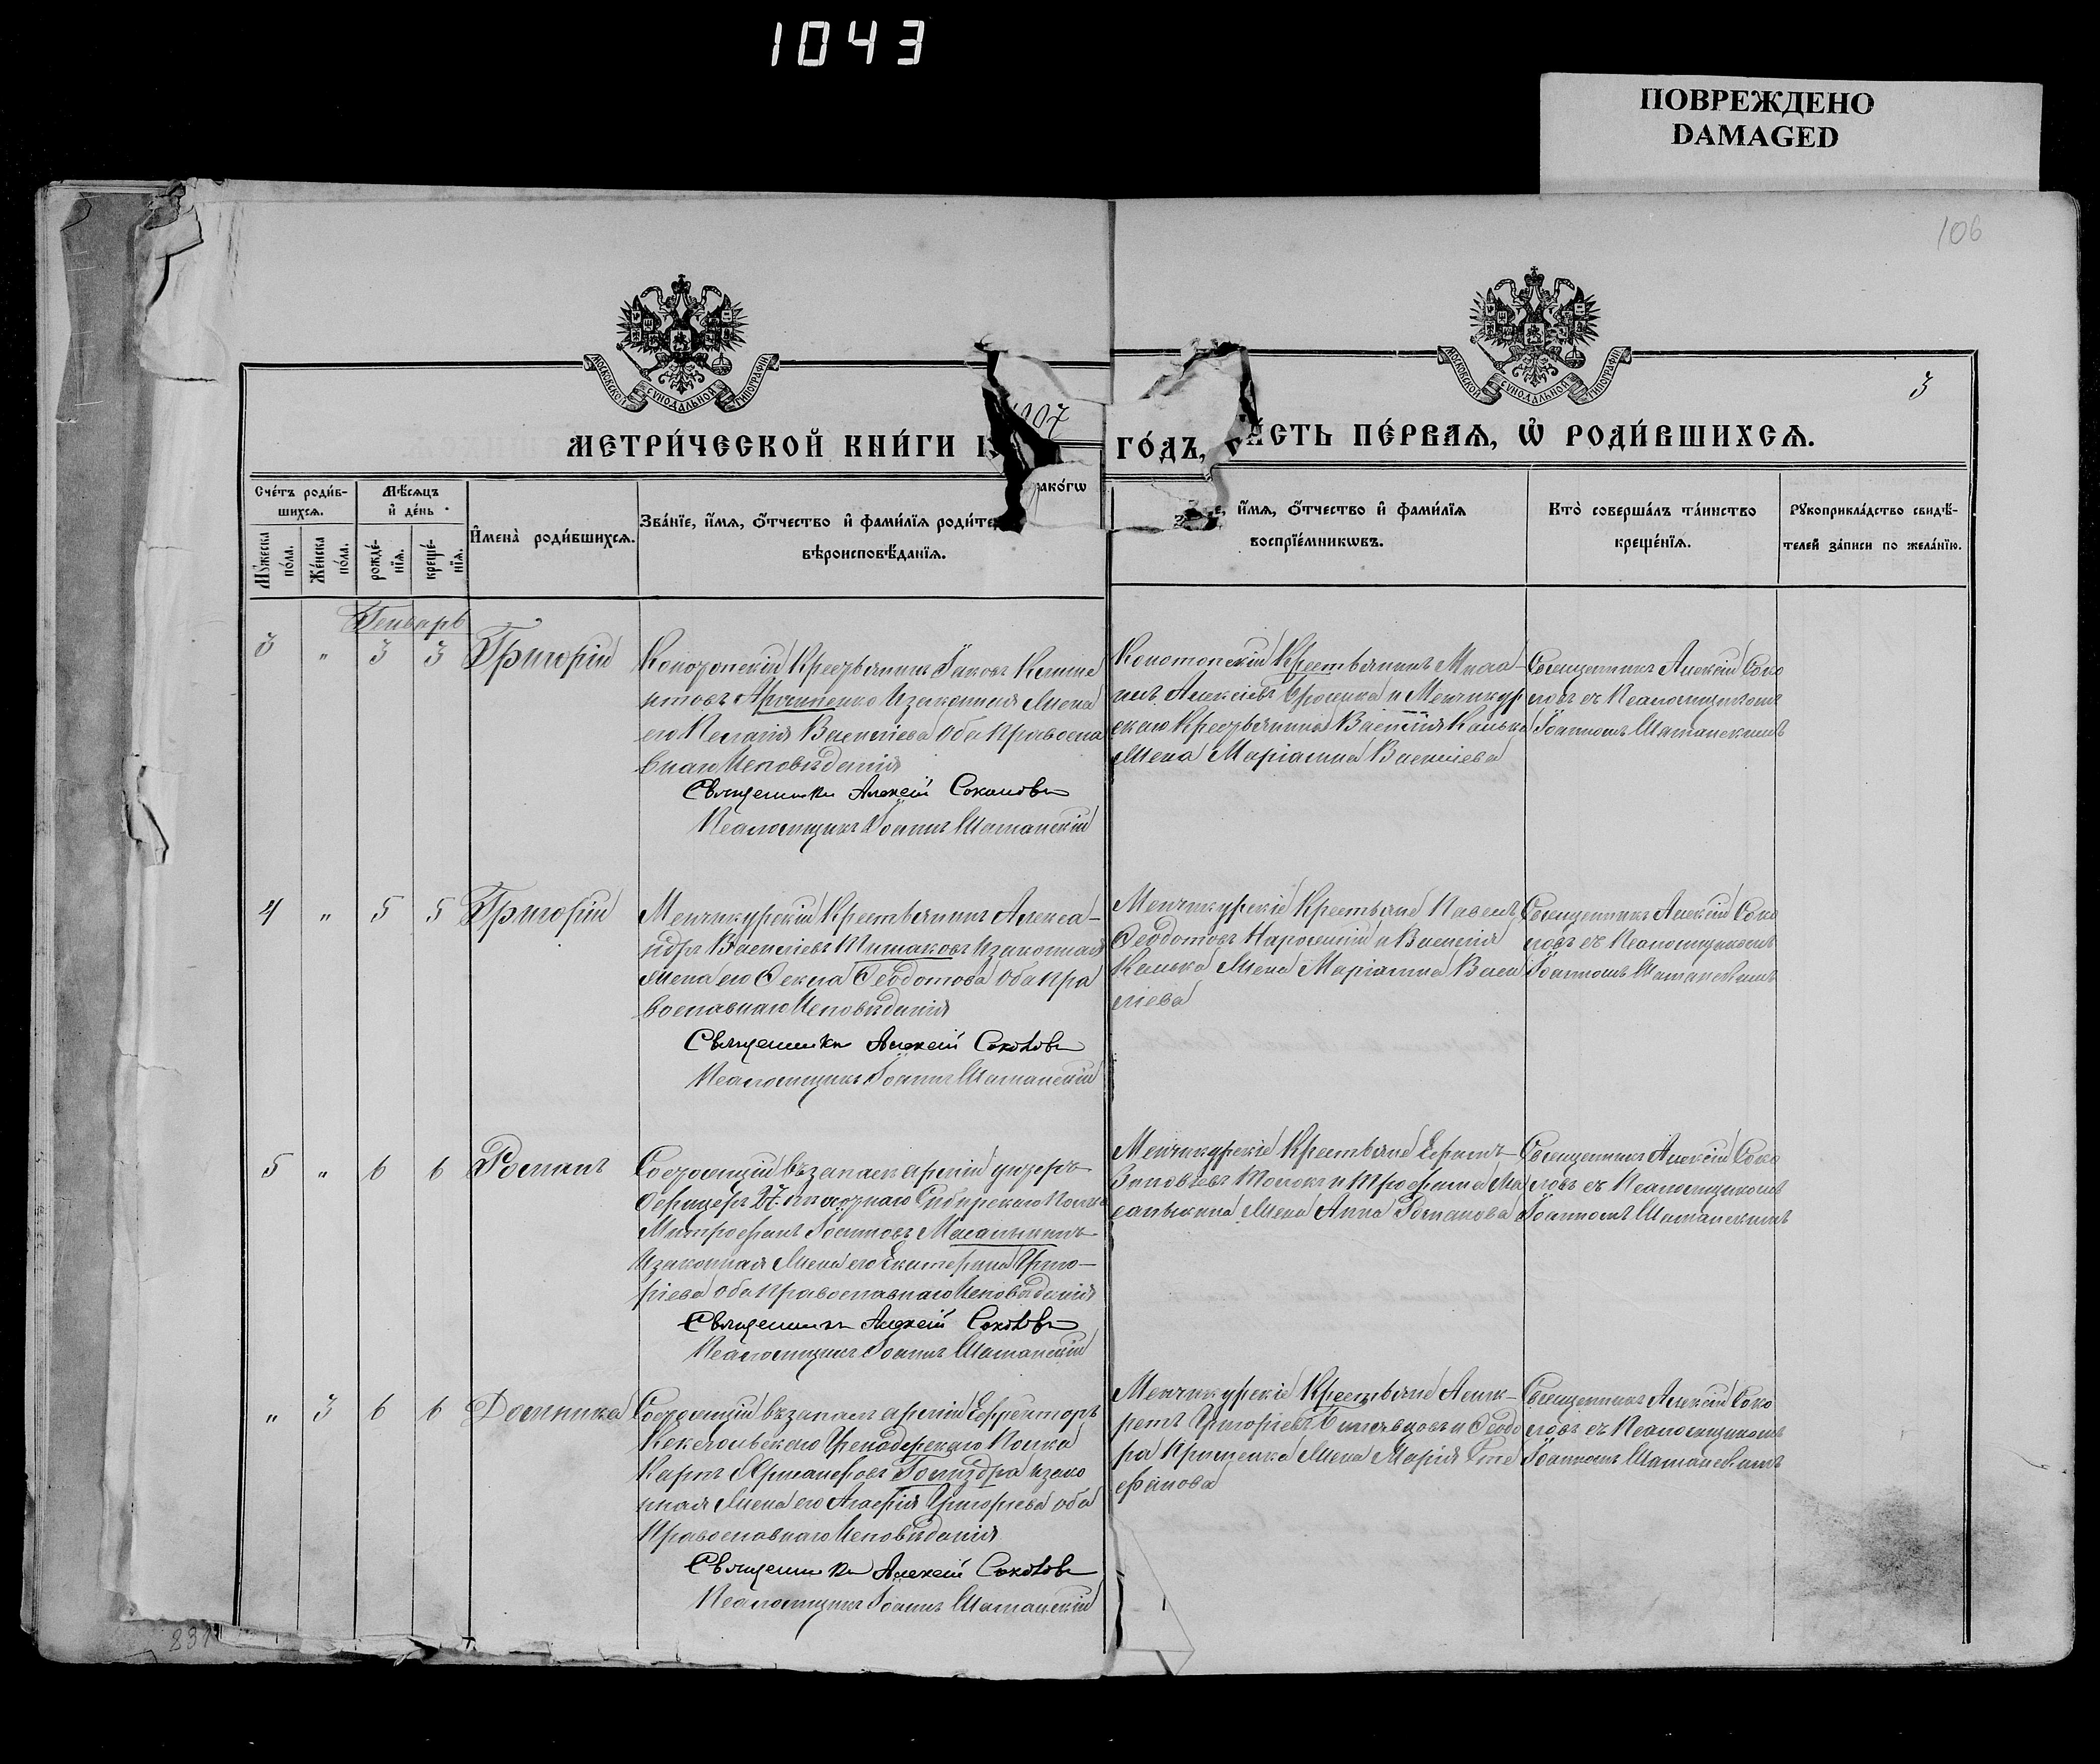 1043
ПОВРЕЖДЕНО
DAMAGED
106
МОСКОВСКОЙ СѴНОДАЛЬНОЙ ТИПОГРАФІИ
МОСКОВСКОЙ СѴНОДАЛЬНОЙ ТИПОГРАФІИ
3
1907
МЕТРИ́ЧЕСКОЙ КНИ́ГИ
ГО́ДЪ, ЧА́СТЬ ПЕ́РВАЯ, Ѡ҆ РОДИ́ВШИХСЯ.
Сче́тъ роди́в-
шихся.
Му́жеска по́ла.
Же́нска по́ла.
Мѣ́сяцъ
и҆ де́нь
рожде́-
нїя.
креще́-
нїя.
И҆мена̀ роди́вшихся.
Зва́нїе, и҆́мя, ѻ҆́тчество и҆ фами́лїя роди́те како́гѡ
вѣроисповѣ́данїя.
и҆́мя, ѻ҆́тчество и҆ фами́лїя
воспрїе́мникѡвъ.
Кто̀ соверша́лъ та́инство
креще́нїя.
Рꙋкоприкла́дство свидѣ́-
телей за́писи по жела́нїю.
Генварь
3 " 3 3 Григорій
Конотопскій Крестьянинъ Іаковъ Климе
нтовъ Изаконная Жена
его Пелагія Василіева Оба Правосла
внаго Исповѣданія
Священникъ Алексій Соколовъ
Псаломщикъ Іоаннъ Шатанскій
Конотопскій Крестьянинъ Миха-
илъ Алексіевъ и Менчикур
скаго Крестьянина Василія
Жена Маріанна Василіева
Священникъ Алексій Соко
ловъ съ Псаломщикомъ
Іоанномъ Шатанскимъ
4 " 5 5 Григорій
Менчикурскій Крестьянинъ Алекса-
ндръ Василіевъ Изаконная
Жена его Ѳекла Ѳеодотова Оба Пра
вославнаго Исповѣданія
Священникъ Алексій Соколовъ
Псаломщикъ Іоаннъ Шатанскій
Менчикурскіе Крестьяне Павелъ
Ѳеодотовъ и Василія
Жена Маріанна Васи
ліева
Священникъ Алексій Соко
ловъ съ Псаломщикомъ
Іоанномъ Шатанскимъ
5 " 6 6 Романъ
Состоящій въ запасѣ арміи унтеръ-
Офицеръ 27. пѣхотнаго Сибирскаго Полка
Митрофанъ Масалыкинъ
Изаконная Жена его Екатерина Григо-
ріева оба Православнаго Исповѣданія
Священникъ Алексій Соколовъ
Псаломщикъ Іоаннъ Шатанскій
Менчикурскіе Крестьяне Ефимъ
и Трофима Ма
салыкина Жена Анна Романова
Священникъ Алексій Соко
ловъ съ Псаломщикомъ
Іоанномъ Шатанскимъ
" 3 6 6 Домника
Состоящій въ запасѣ арміи Ефрейторъ
Кексгольмскаго Гренадерскаго Полка
Карпъ изако
нная Жена его Агафія Григоріева оба
Православнаго Исповѣданія
Священникъ Алексій Соколовъ
Псаломщикъ Іоаннъ Шатанскій
Менчикурскіе Крестьяне
Григоріевъ и Ѳеодо
ра Жена Марія Сте
фанова
Священникъ Алексій Соко
ловъ съ Псаломщикомъ
Іоанномъ Шатанскимъ